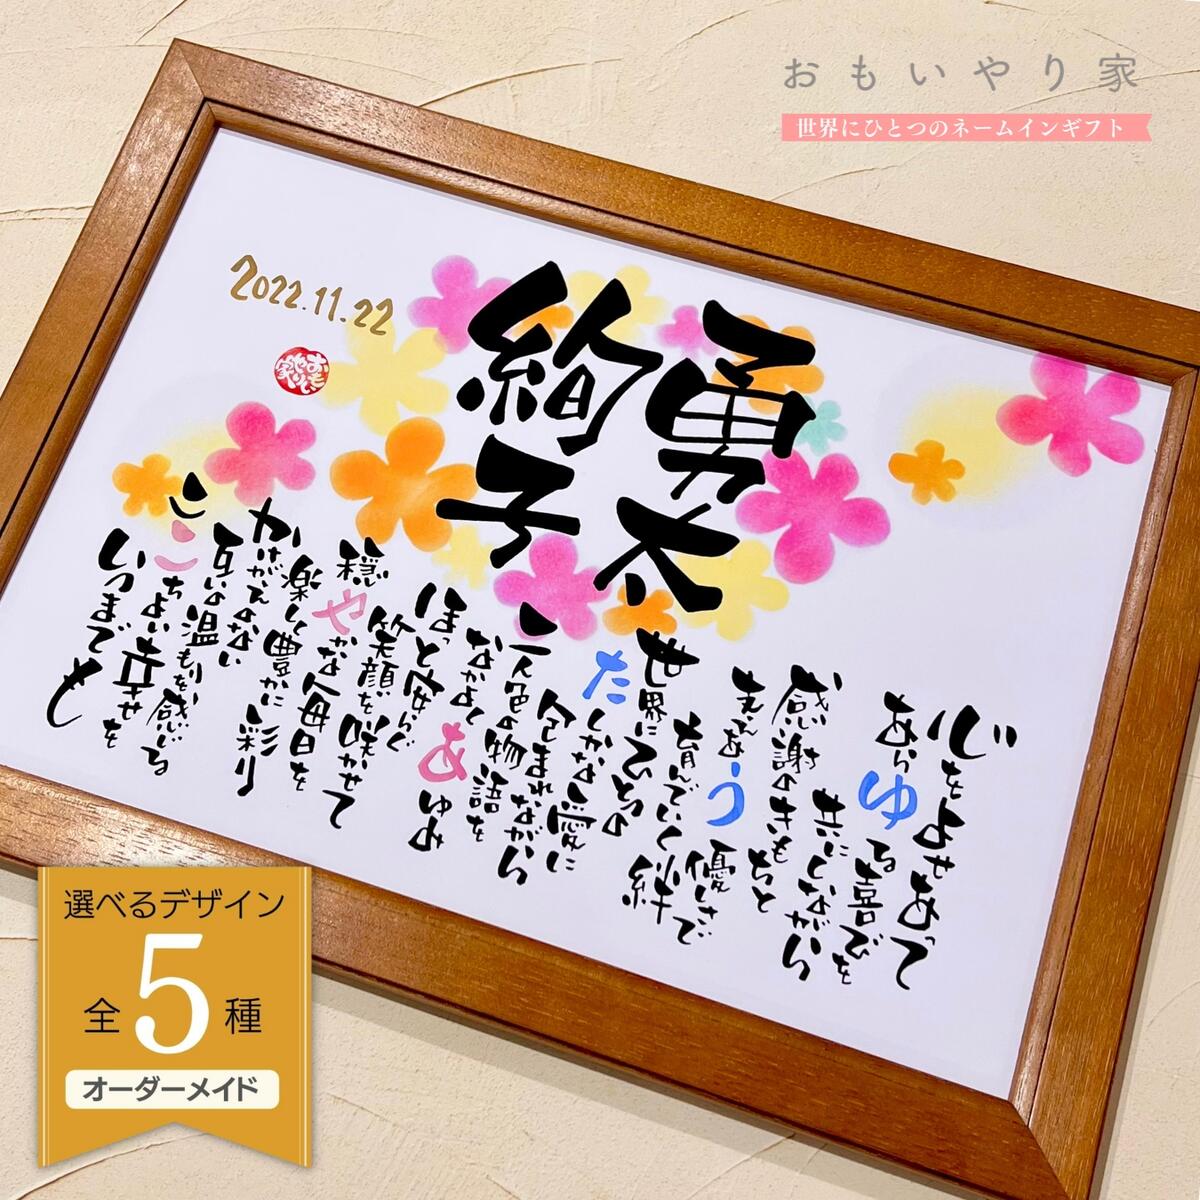 おもいやり家
世界にひとつのネームインギフト
2022.11.22
おもいやり家
勇太
絢子
心をよせあって
あらゆる喜びを
共にしながら
感謝のきもちと
支えあう優しさで
育んでいく絆
世界にひとつの
たしかな愛に
包まれながら
二人色の物語を
なかよくあゆみ
ほっと安らぐ
笑顔を咲かせて
穏やかな毎日を
楽しく豊かに彩り
かけがえのない
互いの温もりを感じる
こころ
ちよい幸せを
いつまでも
選べるデザイン
全5種
オーダーメイド